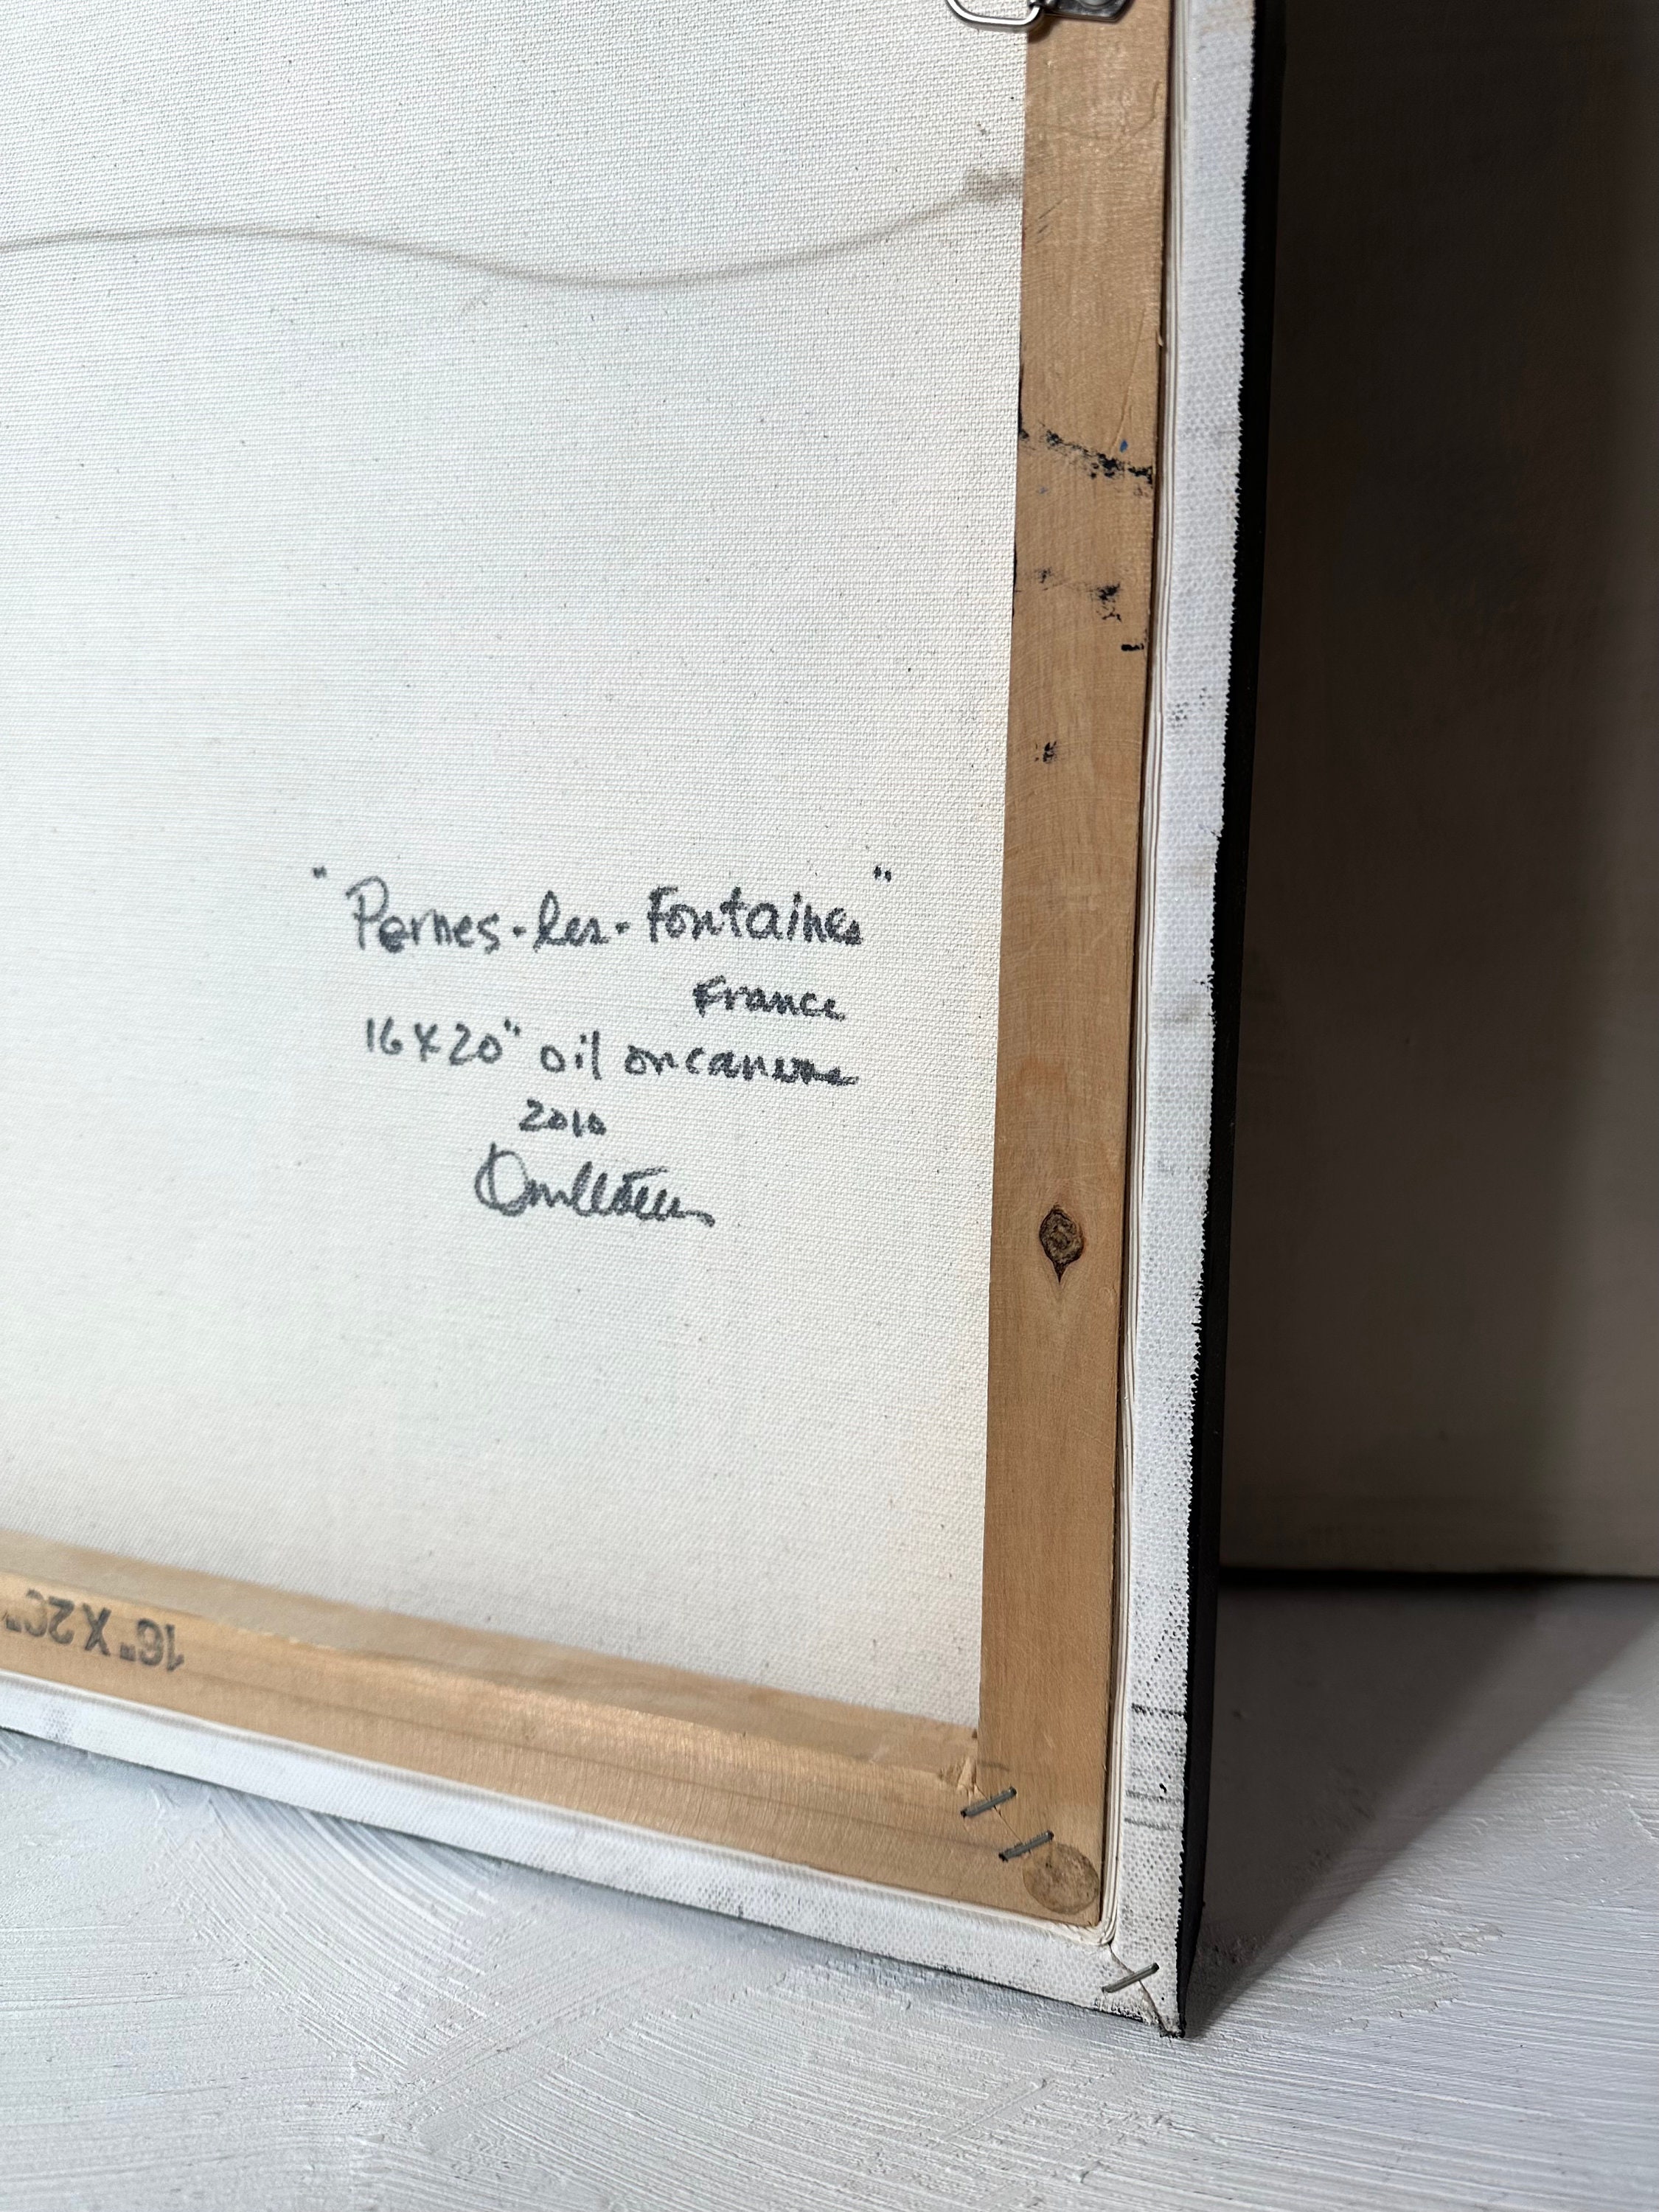 "Pernes-les-Fontaines"
France
16X20" oil on canvas
2010
16" X 20"